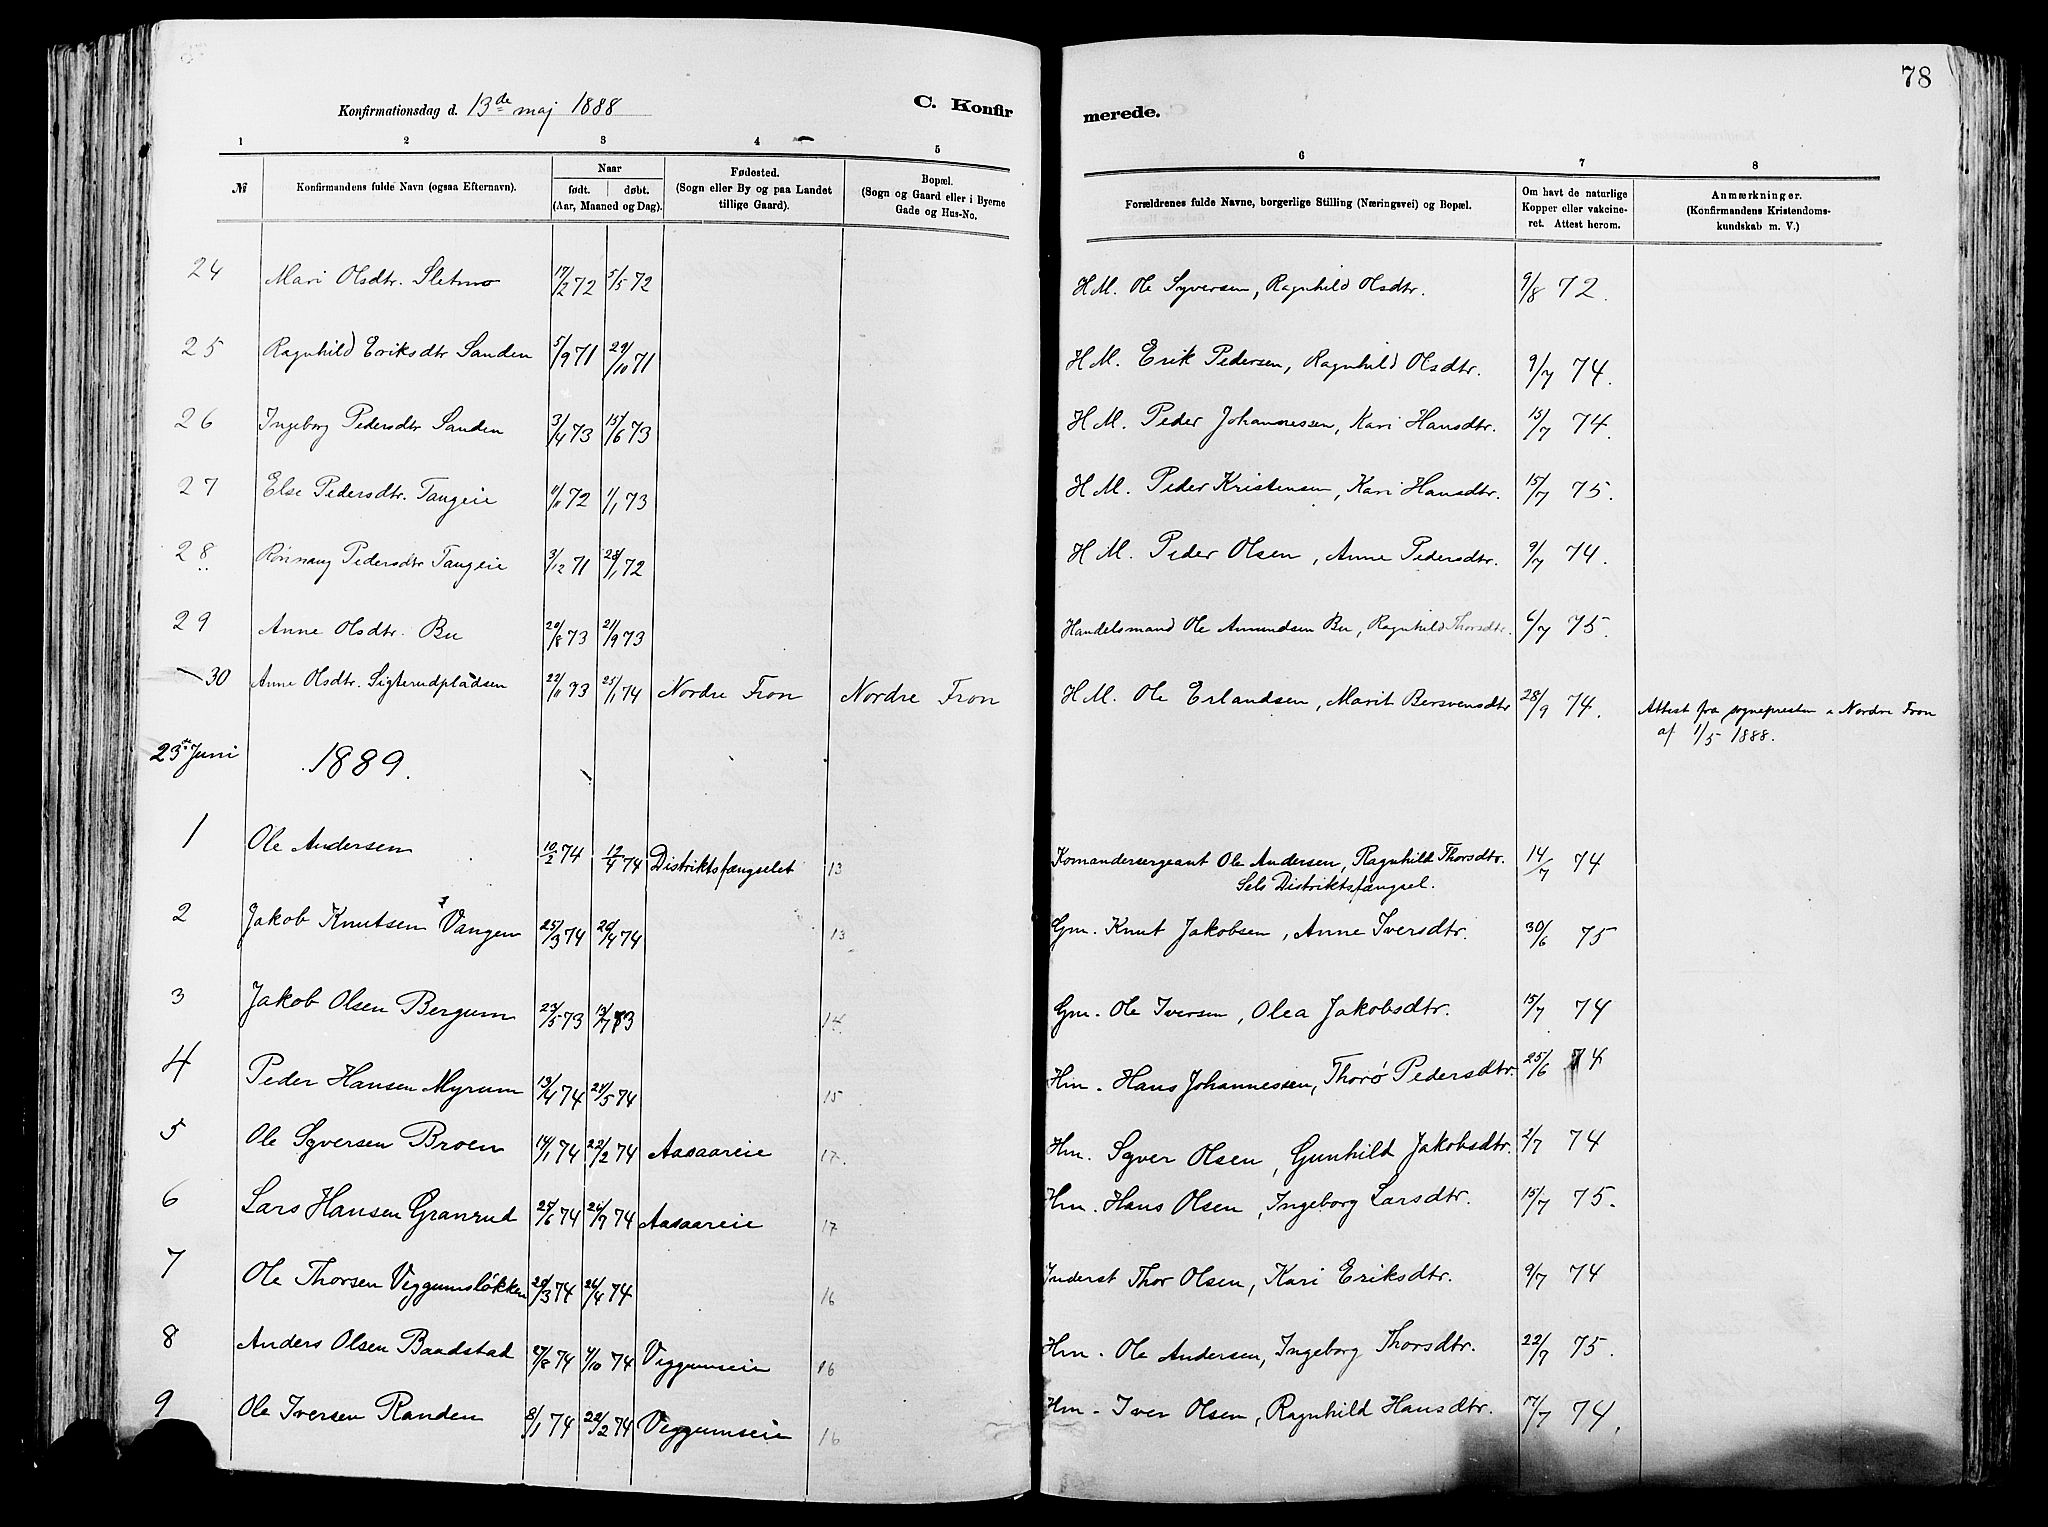 78
Konfirmationsdag d. 13de maj 1888
C. Konfirmerede.
1 2 3 4 5 6 7 8
№
Konfirmandens fulde Navn (ogsaa Efternavn).
Naar
født. døbt.
(Aar, Maaned og Dag).
Fødested.
(Sogn eller By og paa Landet
tillige Gaard).
Bopæl.
(Sogn og Gaard eller i Byerne
Gade og Hus-No.
Forældrenes fulde Navne, borgerlige Stilling (Næringsvei) og Bopæl.
Om havt de naturlige
Kopper eller vakcine-
ret. Attest herom.
Anmærkninger.
(Konfirmandens Kristendoms-
kundskab m. V.)
24 Mari Olsdtr. Sletmo 17/2 72 5/5 72 HM. Ole Syversen, Ragnhild Olsdtr. 9/8 72.
25 Ragnhild Eriksdtr Sanden 5/9 71 29/10 71 HM. Erik Pedersen, Ragnhild Olsdtr. 9/7 74.
26 Ingeborg Pedersdtr Sanden 3/4 73 15/6 73 HM. Peder Johannessen, Kari Hansdtr. 15/7 74.
27 Else Pedersdtr. Tangeie 11/11 72 1/1 73 HM. Peder Kristensen, Kari Hansdtr. 15/7 75.
28 Rønnaug Pedersdtr Tangeie 3/12 71 28/1 72 HM. Peder Olsen, Anne Pedersdtr. 9/7 74.
29 Anne Olsdtr. Bu 20/8 73 21/9 73 Handelsmand Ole Amundsen Bu, Ragnhild Thorsdtr. 6/7 75.
30 Anne Olsdtr. Sigterudpladsen 22/11 73 25/1 74 Nordre Fron Nordre Fron HM. Ole Erlandsen, Marit Bersvensdtr 28/9 74. Attest fra sognepresten i Nordre Fron
af 1/5 1888.
23de Juni 1889.
1 Ole Andersen 10/2 74 12/4 74 Distriktsfængselet 13 Komandersergeant Ole Andersen, Ragnhild Thorsdtr. 14/7 74
Sels Distriktsfængsel.
2 Jakob Knutsen Vangen 25/3 74 20/4 74 13 Gm. Knut Jakobsen, Anne Iversdtr. 30/6 75
3 Jakob Olsen Bergum 23/5 73 13/7 73 14 Gm. Ole Iversen, Olea Jakobsdtr. 15/7 74
4 Peder Hansen Myrum 13/4 74 21/5 74 15 Hm. Hans Johannessen, Thorø Pedersdtr. 25/6 74
5 Ole Syversen Broen 14/1 74 22/2 74 Aasaareie 17. Hm. Syver Olsen, Gunhild Jakobsdtr. 2/7 74
6 Lars Hansen Granrud 25/6 74 26/9 74 Aasaareie 17 Hm. Hans Olsen, Ingeborg Larsdtr. 15/7 75.
7 Ole Thorsen Veggumsløkken 20/3 74 26/4 74 16 Inderst Thor Olsen, Kari Eriksdtr. 9/7 74
8 Anders Olsen Baadstad 27/8 74 4/10 74 Veggumseie 16 Hm. Ole Andersen, Ingeborg Thorsdtr. 22/9 75.
9 Ole Iversen Randen 8/1 74 22/2 74 Veggumseie 16 Hm. Iver Olsen, Ragnhild Hansdtr. 17/7 74.